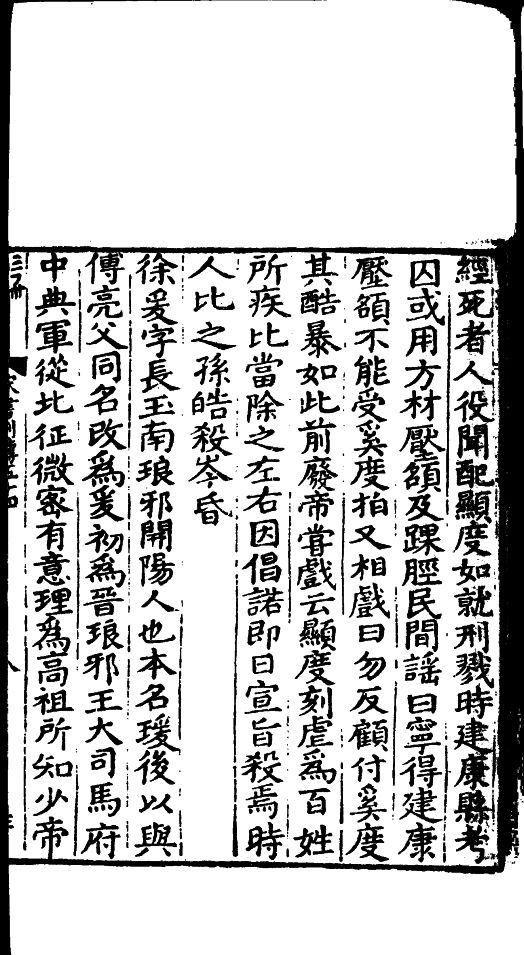 經死者人役聞配顯度如就刑戮時建康縣考
囚或用方材壓額及踝脛民間謡曰寧得建康
壓額不能受奚度拍又相戲曰勿反顧付奚度
其酷暴如此前廢帝甞戲云顯度刻虐爲百姓
所疾比當除之左右因倡諾即日宣旨殺焉時
人比之孫皓殺岑昏
徐爰字長玉南琅邪開陽人也本名瑗後以與
傅亮父同名改爲爰初爲晉琅邪王大司馬府
中典軍從北征微宻有意理爲高祖所知少帝